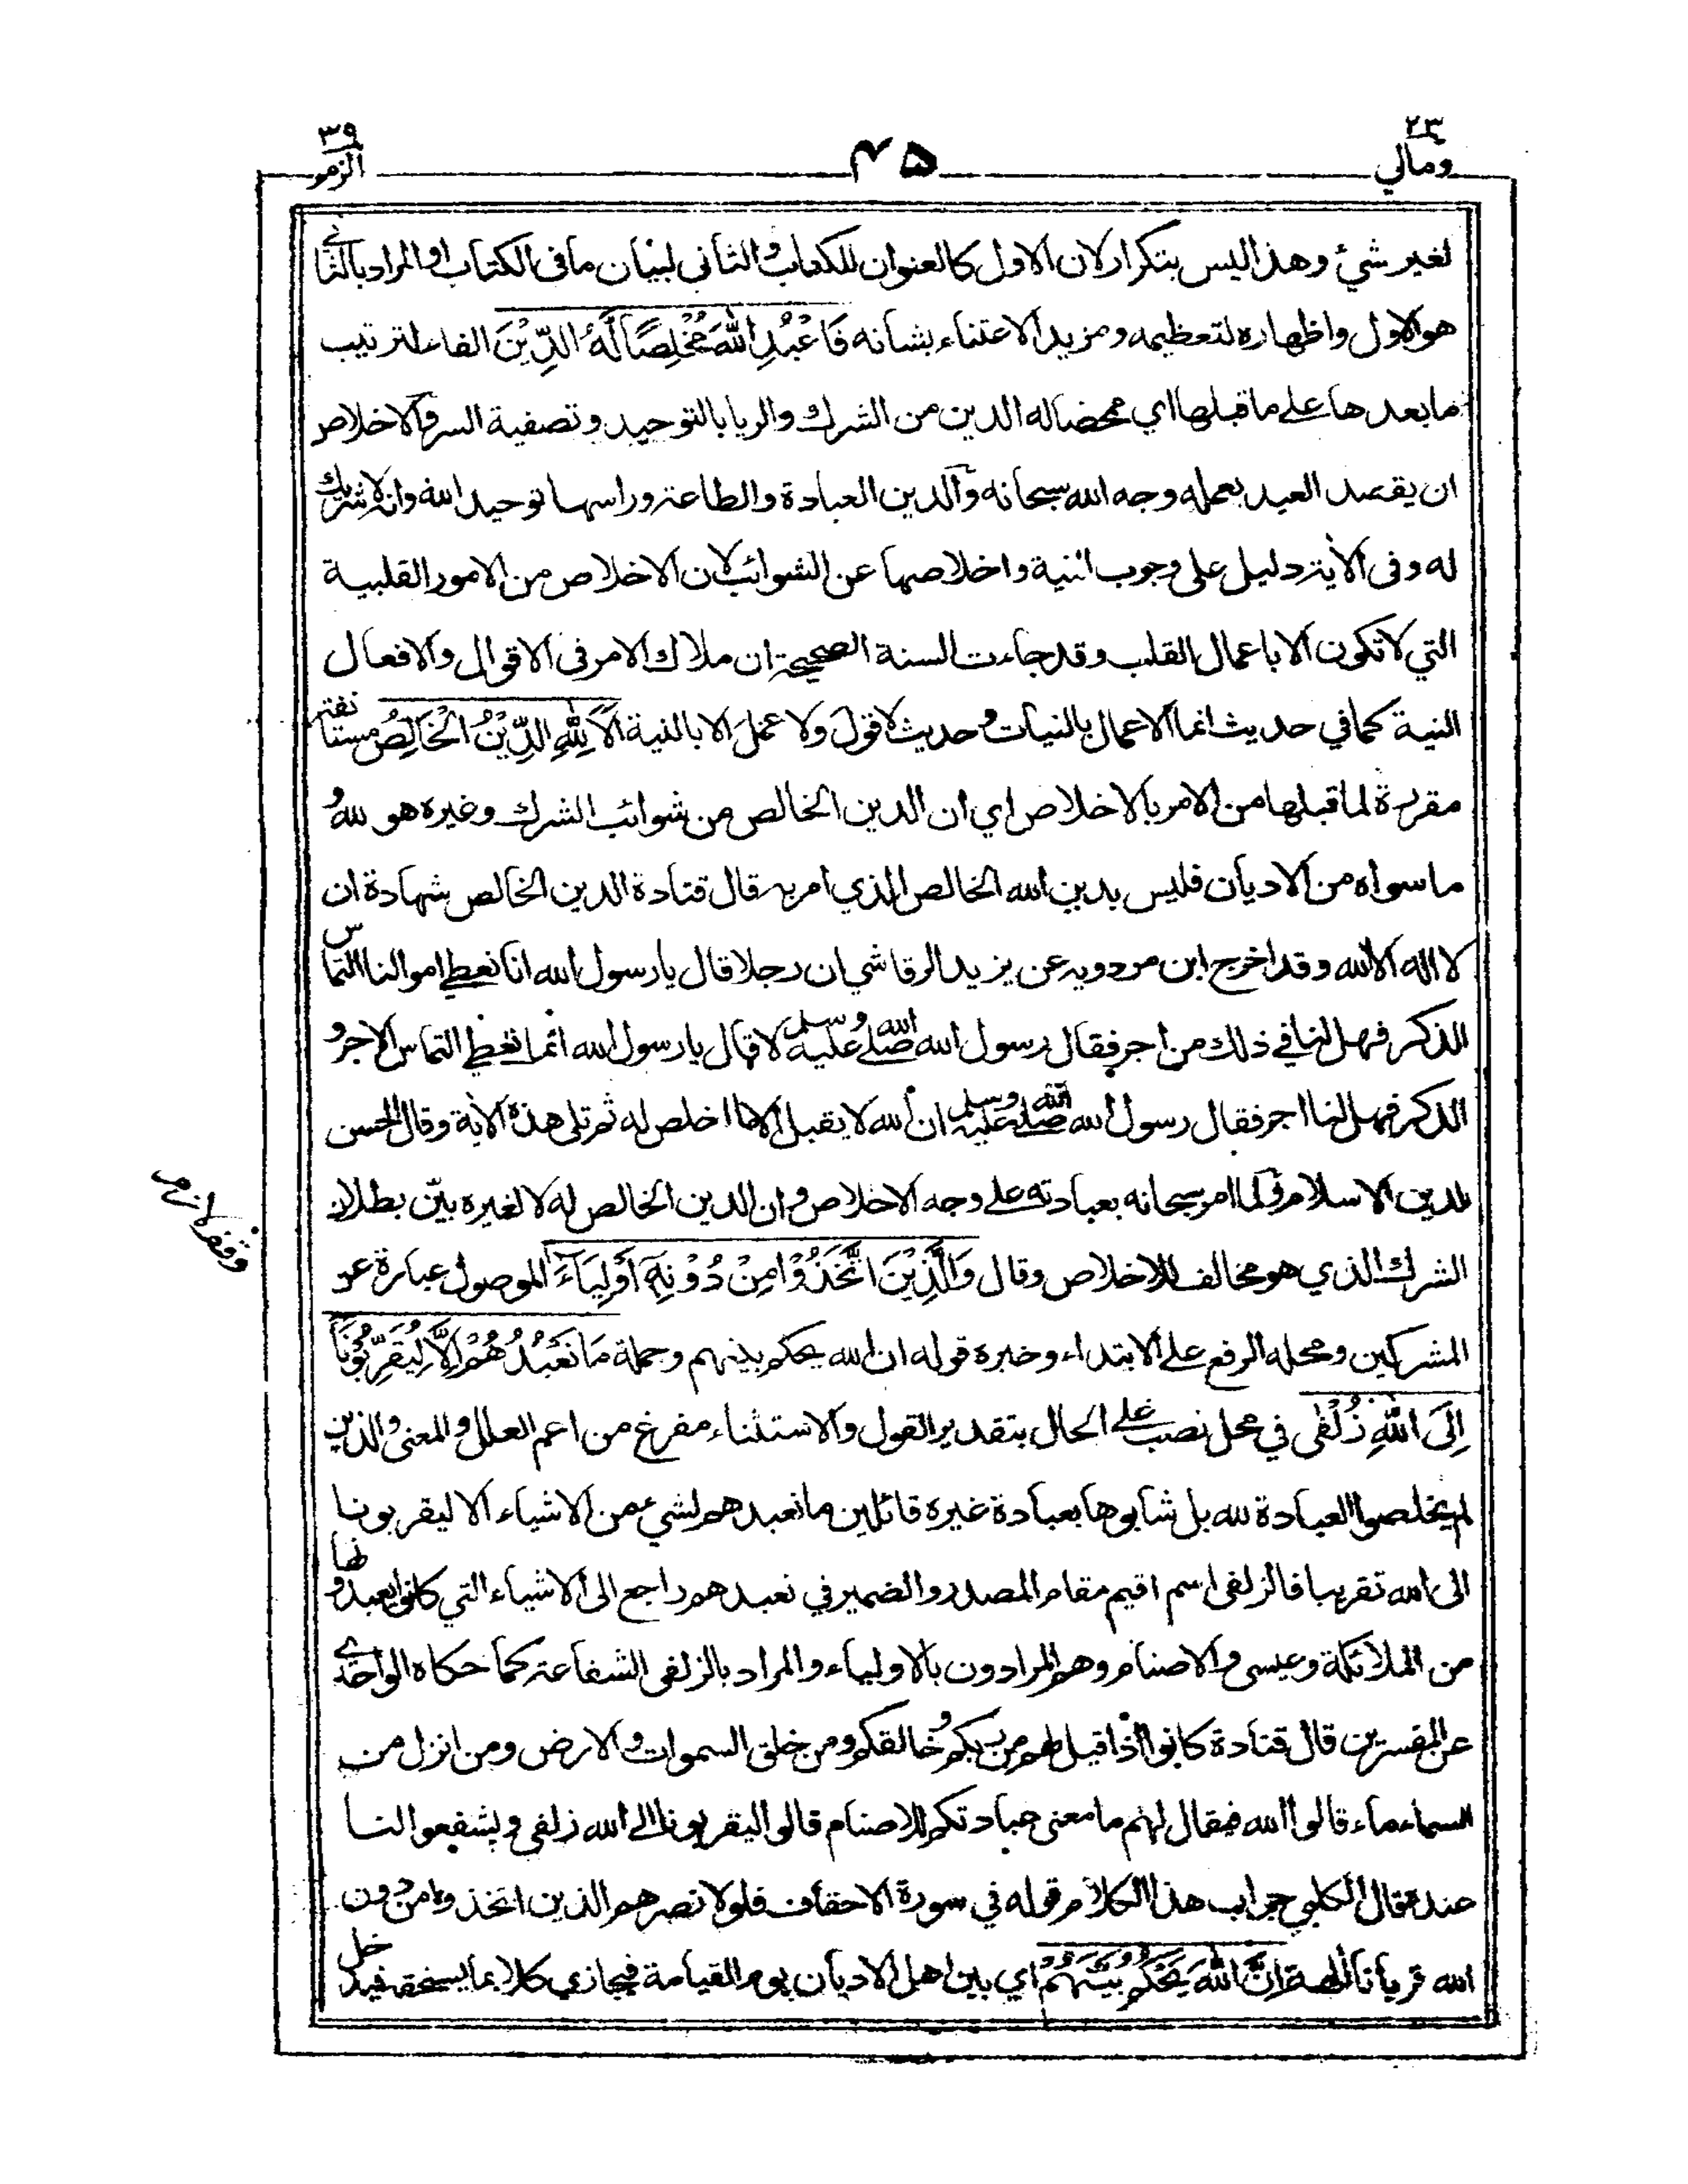 ٢٣
ومالي
٤٥
٣٩
الزمر
لغير شيئ وهذا ليس بتكرار لان الاول كالعنوان للكتاب والثانى لبيان ما فى الكتاب او المراد بالثانے
هو الاول واظهاره لتعظيمه ومزيد الاعتناء بشانه فَاعْبُدِ اللّٰهَ مُخْلِصًا لَّهُ الدِّيْنَ الفاء لترتيب
ما بعدها علے ما قبلها اي ممحضا له الدين من الشرك والريا بالتوحيد وتصفية السر والاخلاص
ان يقصد العبد بعمله وجه الله سبحانه والدين العبادة والطاعة وراسها توحيد الله وانه لا شريك
له وفى الاية دليل على وجوب النية واخلاصها عن الشوائب لان الاخلاص من الامور القلبية
التي لا تكون الا باعمال القلب وقد جاءت السنة الصحيحة ان ملاك الامر فى الاقوال والافعال
النية كما في حديث انما الاعمال بالنيات وحديث لا قول ولا عمل الا بالنية اَلَا لِلّٰهِ الدِّيْنُ الْخَالِصُ مستانفة
مقررة لما قبلها من الامر بالاخلاص اي ان الدين الخالص من شوائب الشرك وغيره هو لله و
ما سواه من الاديان فليس بدين الله الخالص الذي امر به قال قتادة الدين الخالص شهادة ان
لا اله الا الله وقد اخرج ابن مردويه عن يزيد الرقاشي ان رجلا قال يا رسول الله انا نعطے اموالنا التماس
الذكر فهل لنا في ذلك من اجر فقال رسول الله صلے الله عليه وسلم لا قال يا رسول الله انما نعطے التماس الاجر و
الذكر فهل لنا اجر فقال رسول الله صلے الله عليه وسلم ان الله لا يقبل الا ما اخلص له ثم تلى هذه الاية وقال الحسن
الدين الاسلام ولما امر سبحانه بعبادته علے وجه الاخلاص وان الدين الخالص له لا لغيره بيّن بطلان
وقف لازم
الشرك الذي هو مخالف للاخلاص وقال وَالَّذِيْنَ اتَّخَذُوْا مِنْ دُوْنِهٖٓ اَوْلِيَآءَ الموصول عبارة عن
المشركين ومحله الرفع علے الابتداء وخبره قوله ان الله يحكم بينهم وجملة مَا نَعْبُدُهُمْ اِلَّا لِيُقَرِّبُوْنَآ
اِلَى اللّٰهِ زُلْفٰى في محل نصب علے الحال بتقدير القول والاستثناء مفرغ من اعم العلل والمعنى والذين
لم يخلصوا العبادة لله بل شابوها بعبادة غيره قائلين ما نعبدهم لشيء من الاشياء الا ليقربونا
الى الله تقريبا فالزلفى اسم اقيم مقام المصدر والضمير في نعبدهم راجع الى الاشياء التي كانوا يعبدونها
من الملائكة وعيسى والاصنام وهم المرادون بالاولياء والمراد بالزلفى الشفاعة كما حكاه الواحدے
عن المفسرين قال قتادة كانوا اذا قيل لهم من ربكم وخالقكم ومن خلق السموات والارض ومن انزل من
السماء ماء قالوا الله فيقال لهم ما معنى عبادتكم للاصنام قالوا ليقربونا الى الله زلفى ويشفعوا لنا
عنده قال الكلبي جواب هذا الكلام قوله في سورة الاحقاف فلولا نصرهم الذين اتخذوا من دون
الله قربانا الهة اِنَّ اللّٰهَ يَحْكُمُ بَيْنَهُمْ اي بين اهل الاديان يوم القيامة فيجازي كلا بما يستحقه فيدخل